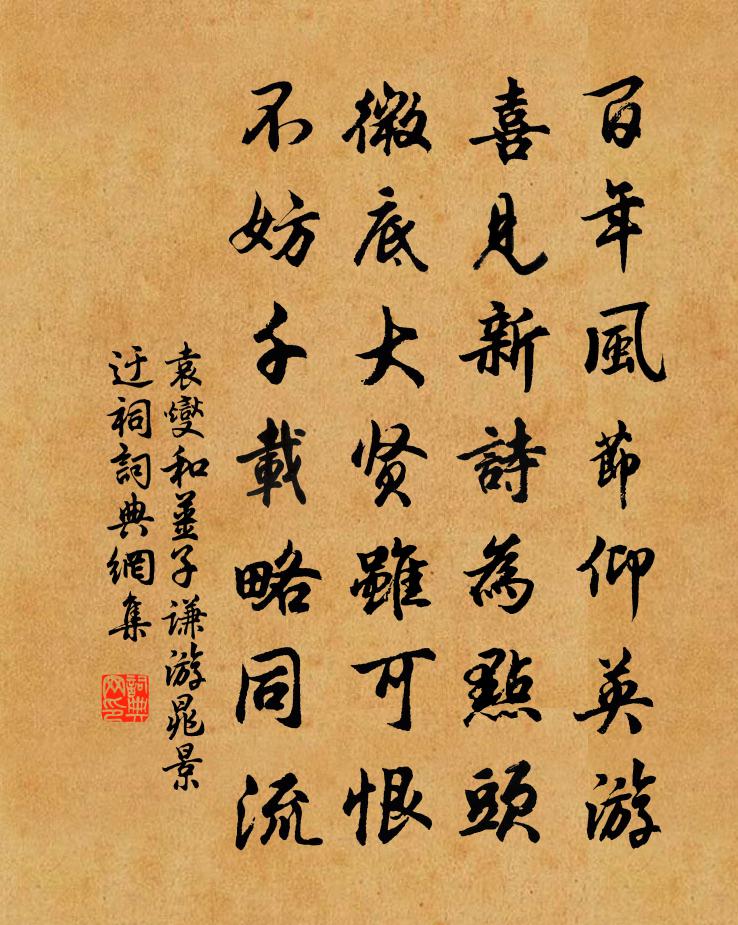 百年風節仰英游
喜見新詩為點頭
微底大贤雖可恨
不妨千載略同流
袁燮和薑子谦游晁景
迂祠詞典網集
詞典
网印